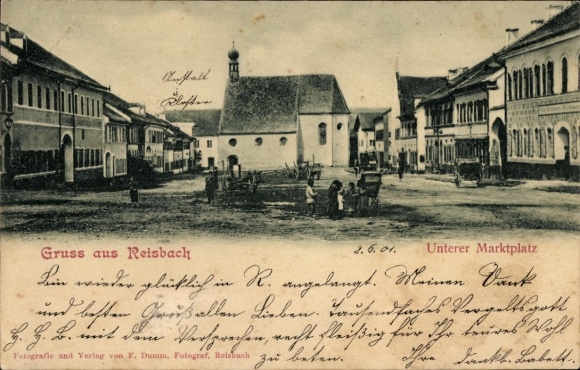 Anstalt
Kloster
Gruss aus Reisbach
2.6.01.
Unterer Marktplatz
Bin wieder glücklich in R. angelangt. Meinen Dank
und besten Gruß allen Lieben. Tausendfaches Vergeltsgott
H. H. B. mit dem Versprechen, recht fleißig für Ihr teures Wohl
zu beten. Ihre dankb. Babett.
Fotografie und Verlag von F. Dumm, Fotograf, Reisbach